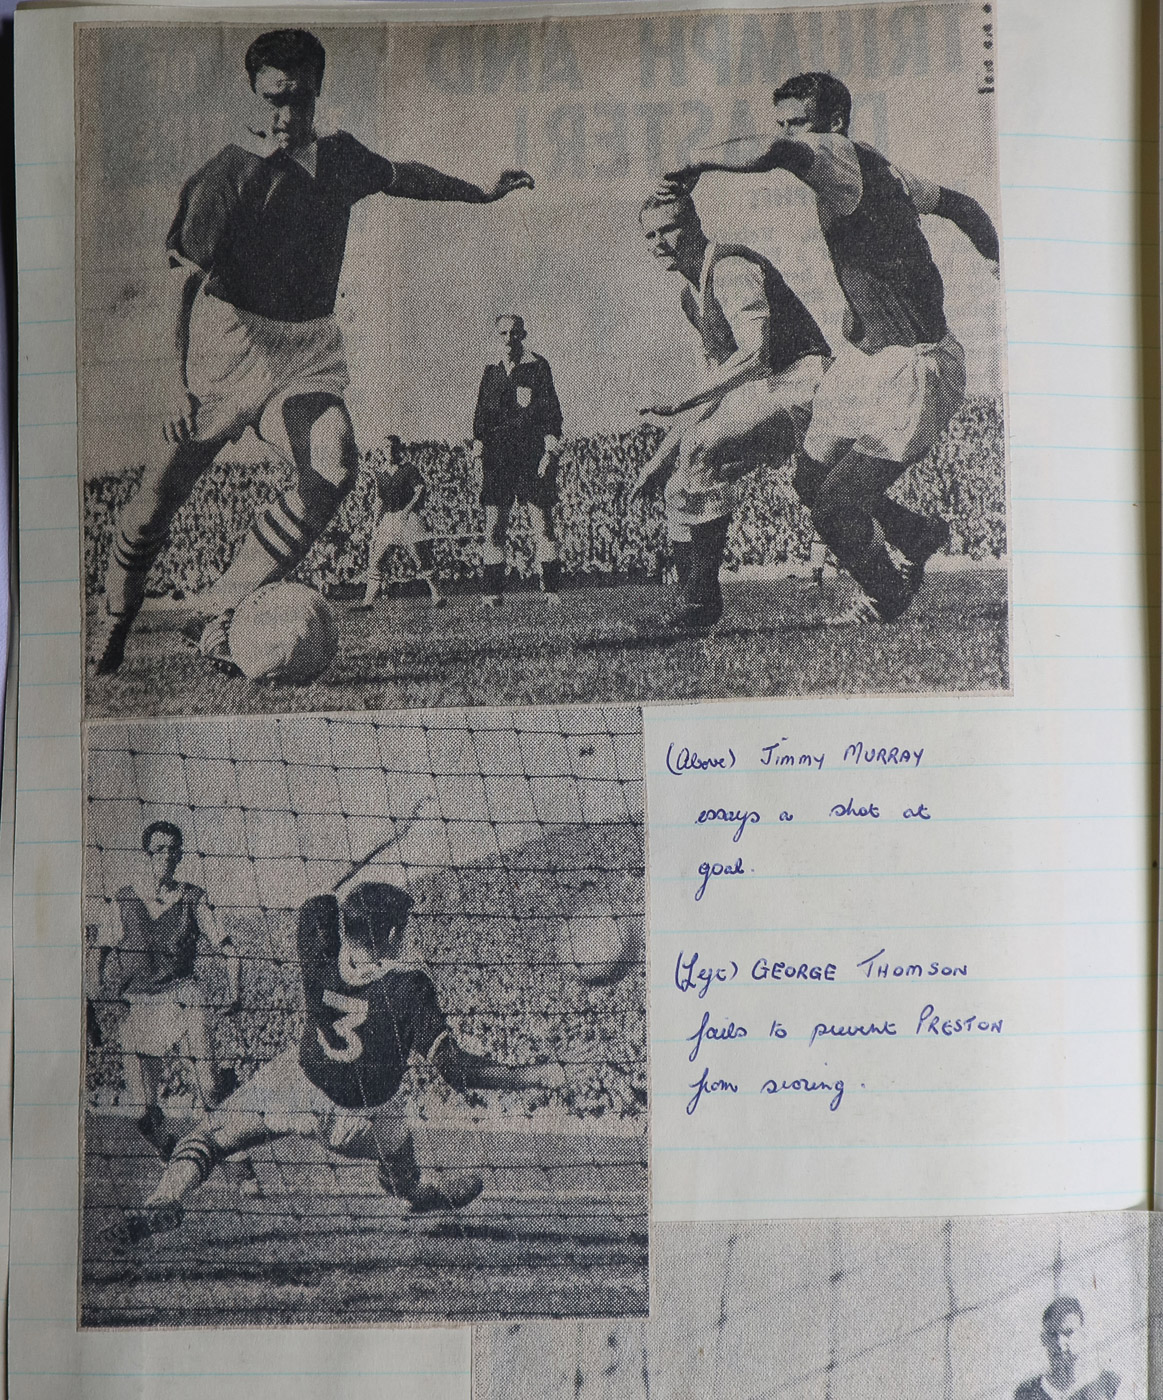 TRIUMPH AND
DISASTER!
3
(Above) Jimmy MURRAY
essays a shot at
goal.
(Left) GEORGE THOMSON
fails to prevent PRESTON
from scoring.